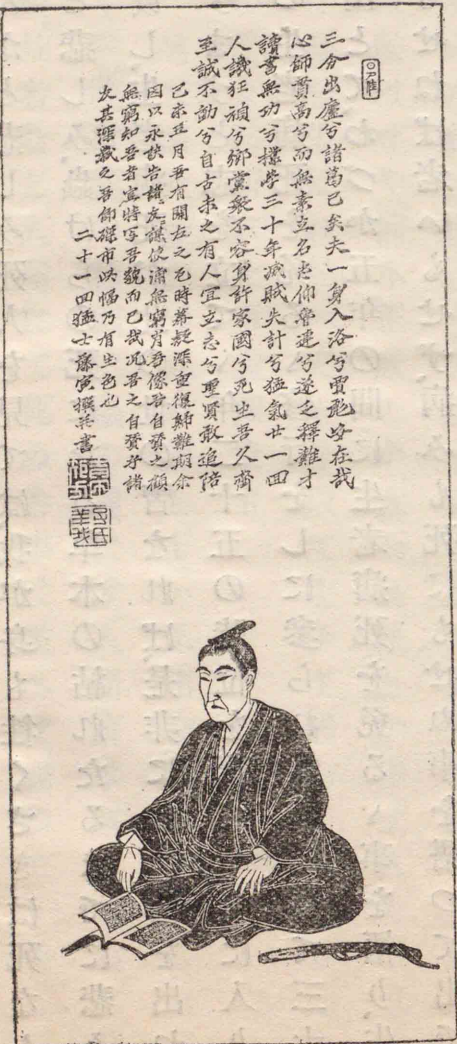 三分出廬兮諸葛已矣夫一身入洛兮賈彪安在哉
心師貫高兮而無素立名志仰魯連兮遂乏釋難才
讀書無功兮樸學三十年滅賊失計兮猛氣廿一回
人譏狂頑兮郷黨衆不容身許家國兮死生吾久齊
至誠不動兮自古未之有人宜立志兮聖賢敢追陪
己未五月吾有關左之厄時幕疑深重復歸難期余
因以永訣告諸友〻謀使浦無窮肖吾像吾自賛之顧
無窮知吾者豈特写吾貌而已哉況吾之自賛乎諸
友其深蔵之吾即磔市此幅乃有生色也
二十一回猛士藤寅撰并書